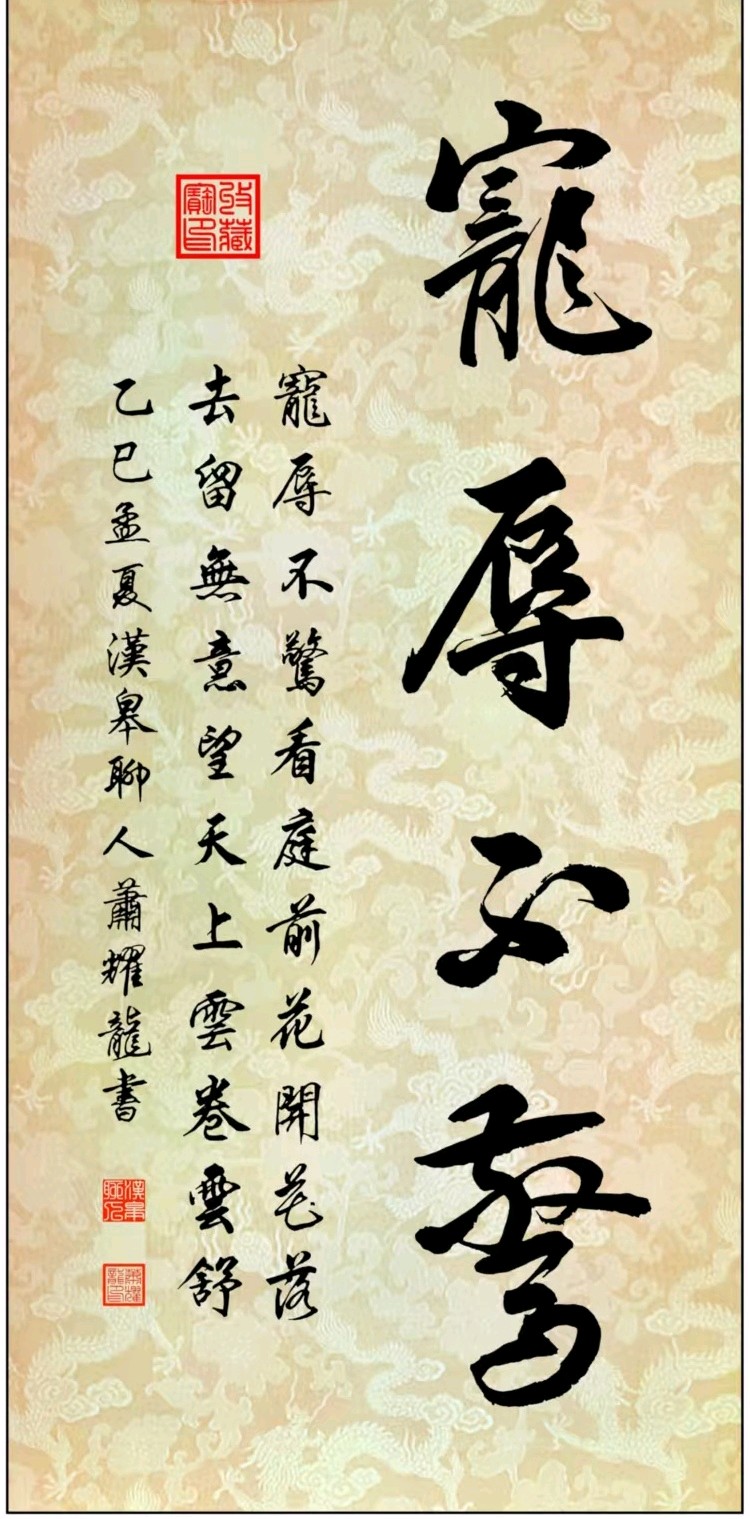 寵辱不驚
寵辱不驚看庭前花開花落
去留無意望天上雲卷雲舒
乙巳孟夏漢皋聊人蕭耀龍書
收藏寶印
漢皋聊人